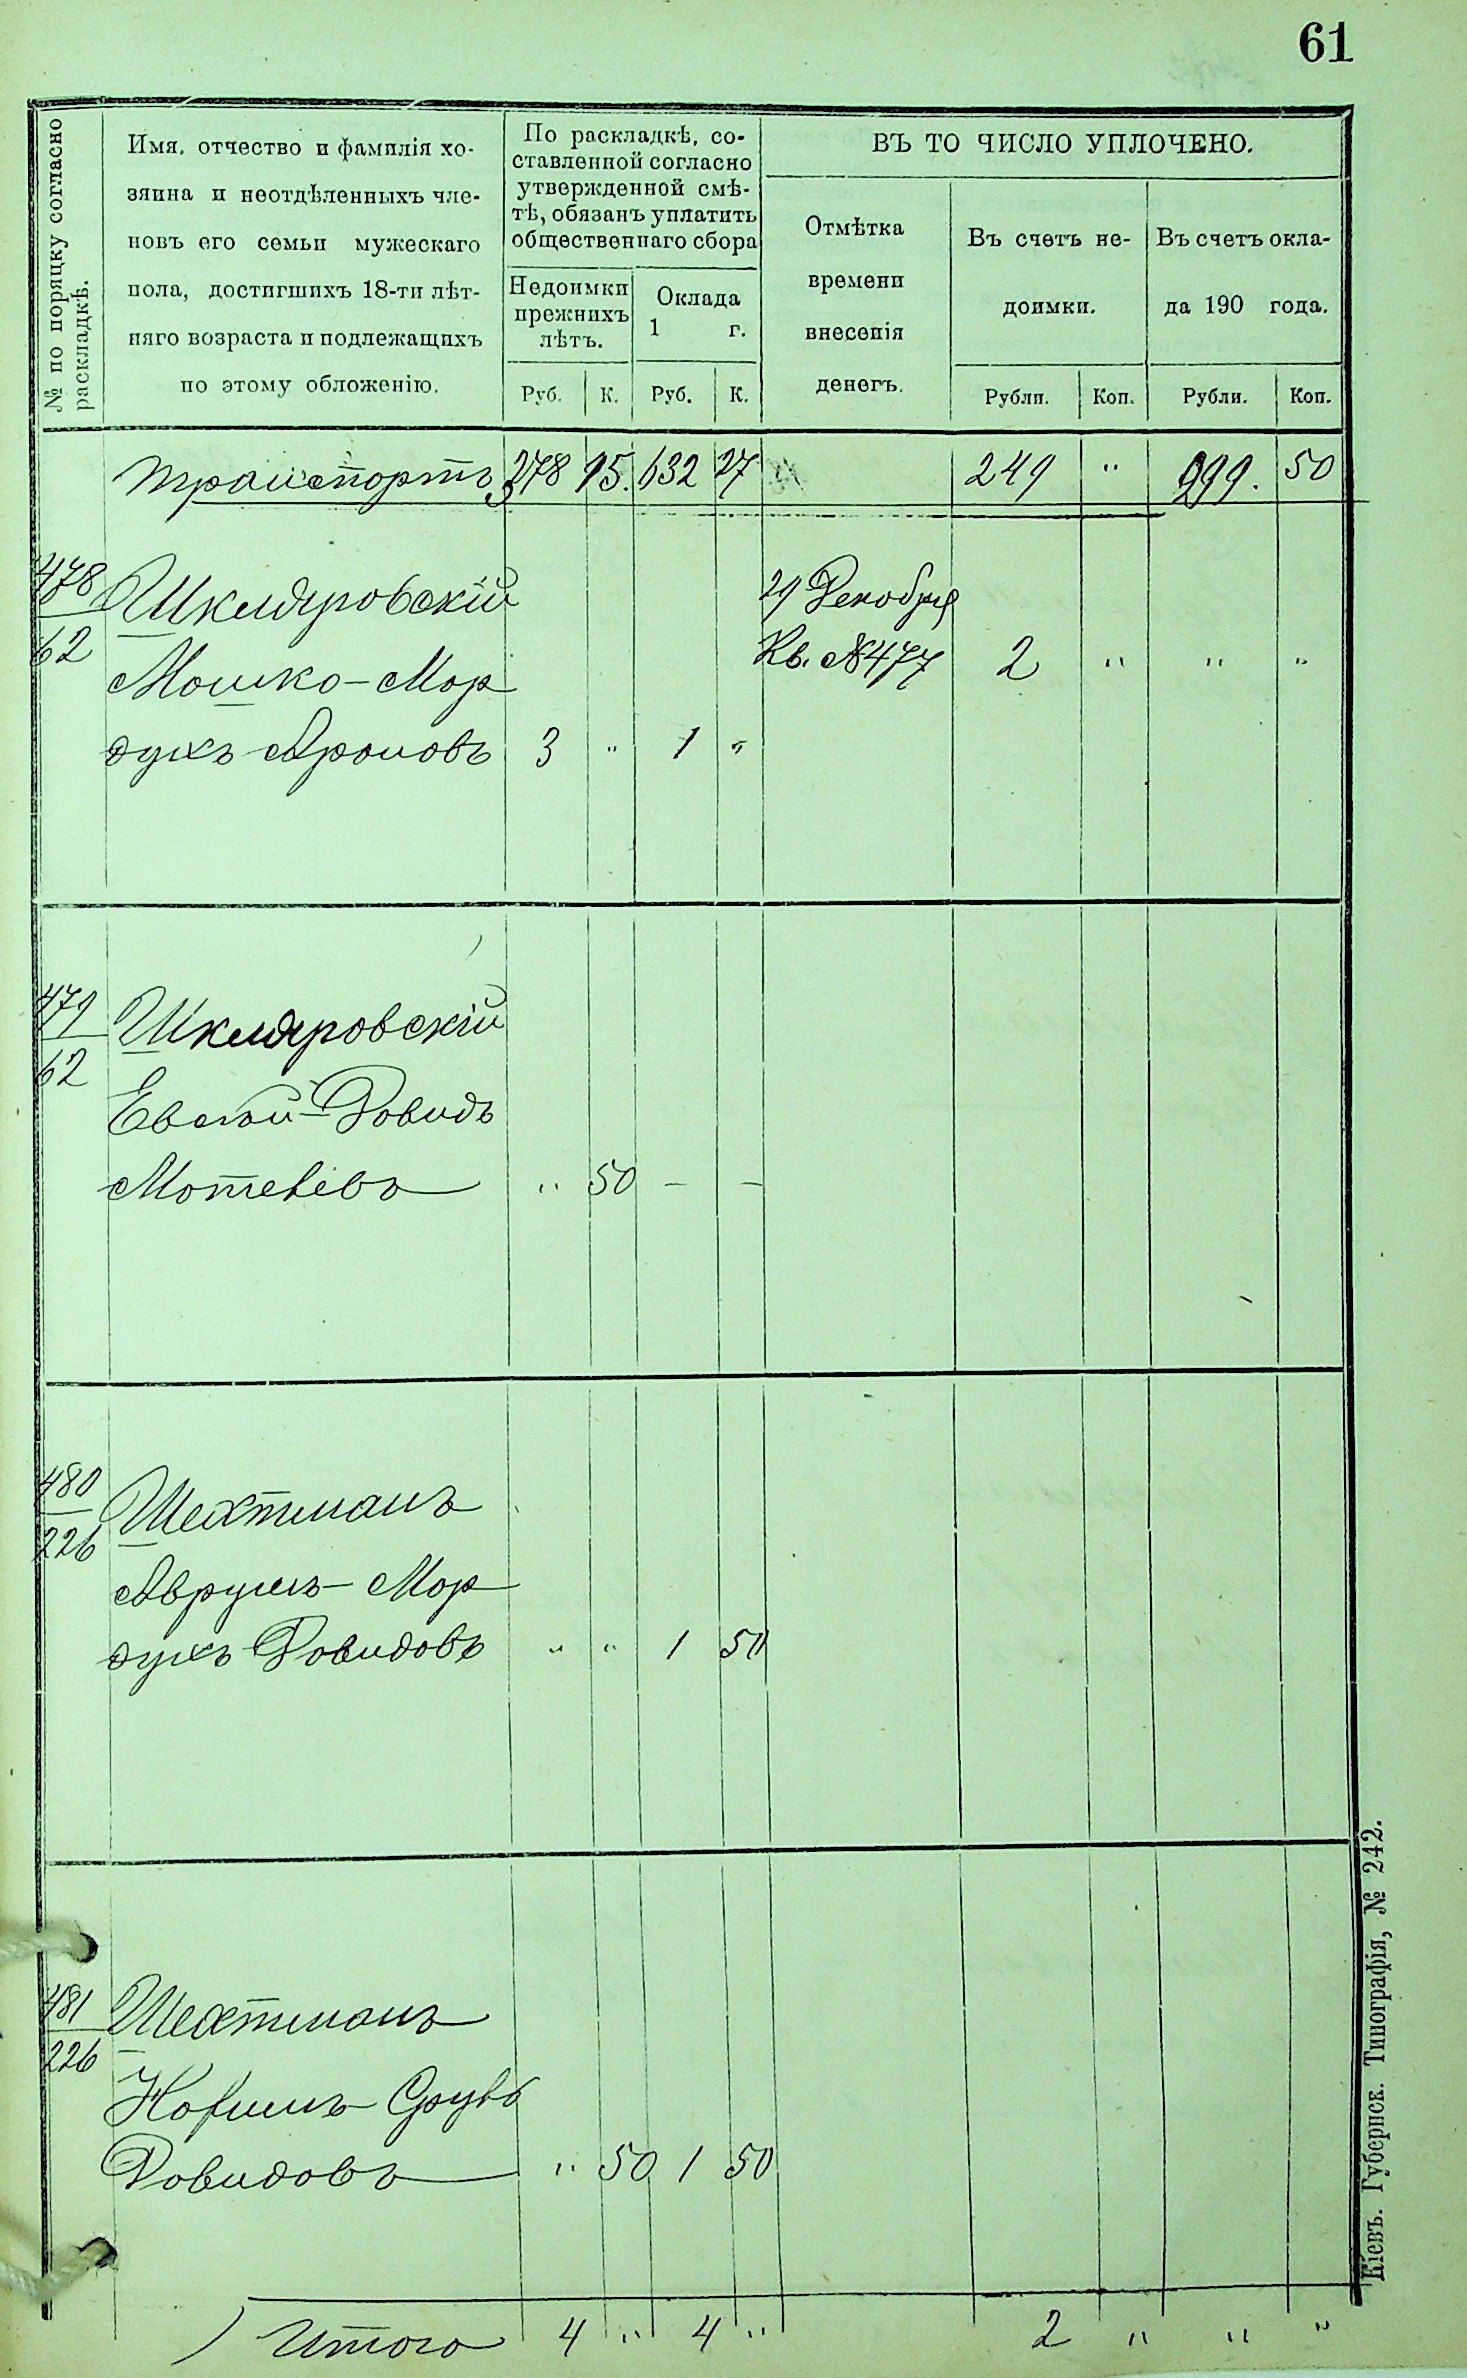 61
№ по поряцку согласно
раскладкѣ.
Имя, отчество и фамилія хо-
зяина и неотдѣленныхъ чле-
новъ его семьи мужескаго
пола, достигшихъ 18-ти лѣт-
няго возраста и подлежащихъ
по этому обложенію.
По раскладкѣ, со-
ставленной согласно
утвержденной смѣ-
тѣ, обязанъ уплатить
общественнаго сбора
Недоимки
прежнихъ
лѣтъ.
Оклада
1 г.
Руб. К. Руб. К.
ВЪ ТО ЧИСЛО УПЛОЧЕНО.
Отмѣтка
времени
внесенія
денегъ.
Въ счетъ не-
доимки.
Въ счетъ окла-
да 190 года.
Рубли. Коп. Рубли. Коп.
Транспортъ 278 15. 632 27 249 " 299. 50
478
62
Шкляровскій
Мошко-Мор
духъ Ароновъ 3 " 1 "
29 Декабря
Кв. №477 2 " " "
479
62
Шкляровскій
Евсѣй-Довидъ
Мотелевъ " 50 - -
480
226
Шехтманъ
Аврумъ-Мор
духъ Довидовъ " " 1 50
481
226
Шехтманъ
Довидовъ " 50 1 50
Итого 4 " 4 " 2 " " "
Кіевъ. Губернск. Типографія, № 242.